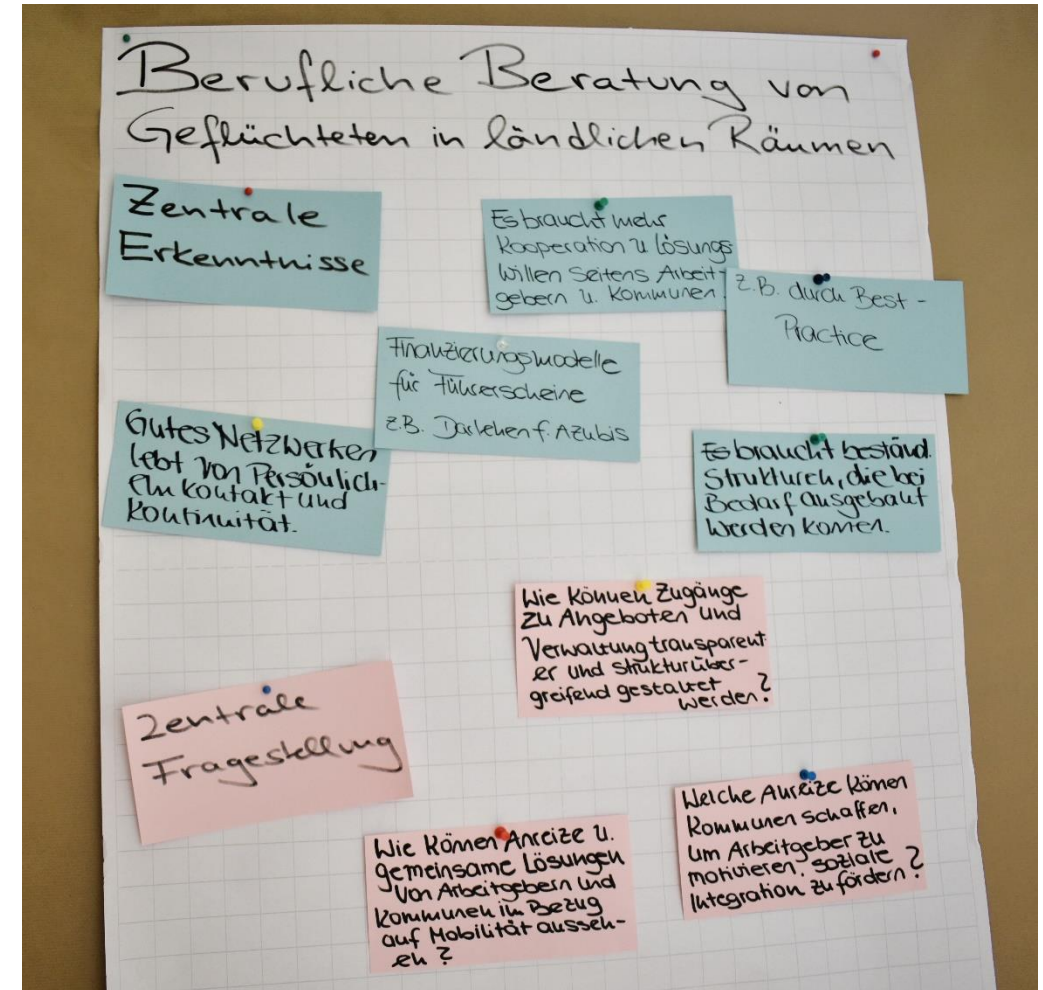 Berufliche Beratung von
Geflüchteten in ländlichen Räumen
Zentrale
Erkenntnisse
Es braucht mehr
Kooperation u. Lösungs-
willen seitens Arbeit-
gebern u. Kommunen.
z.B. durch Best-
Practice
Finanzierungsmodelle
für Führerscheine
z.B. Darlehen f. Azubis
Gutes Netzwerken
lebt von Persönlich-
em Kontakt und
Kontinuität.
Es braucht beständ.
Strukturen, die bei
Bedarf ausgebaut
werden können.
Wie können Zugänge
zu Angeboten und
Verwaltung transparent
er und strukturüber-
greifend gestaltet
werden?
Zentrale
Fragestellung
Welche Anreize können
Kommunen schaffen,
um Arbeitgeber zu
motivieren, soziale
Integration zu fördern?
Wie können Anreize u.
gemeinsame Lösungen
von Arbeitgebern und
Kommunen im Bezug
auf Mobilität ausseh-
en?